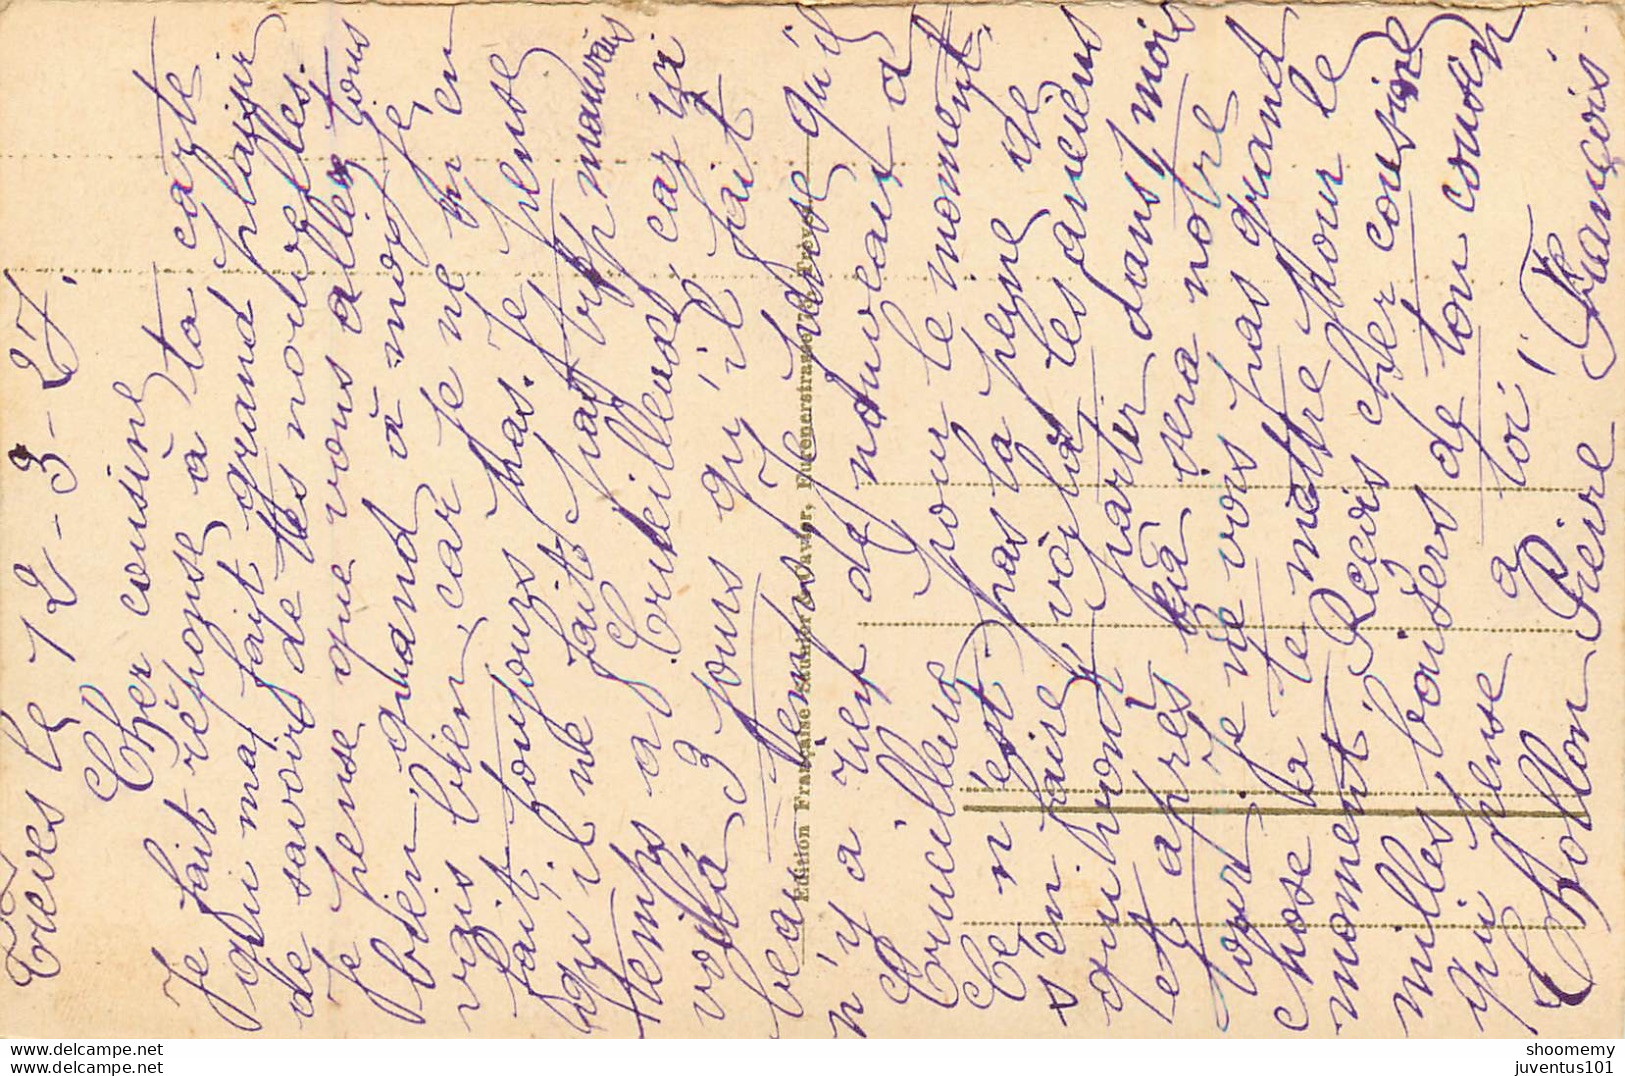 Trèves le 12-3-27.
Cher cousine
Je fait réponse à ta carte
qui ma fait grand plaisir
de savoir de tes nouvelles.
Je pense que vous allez tous
bien, quand à moi je
vais bien, car je ne m'en
fait toujours pas. Je pense
qu'il ne faits pas trop mauvais
temps a Crucilleux, car ici
voilà 3 jours qu'il fait
beau temps Je pense qu'il
n'y a rien de nouveau a
Crucilleux pour le moment.
Ce n'est pas la peine de
s'en faire voilà les anciens
qui vont partir dans 1 mois
et après ça sera notre
tour Je ne vois pas grand
chose à te mettre pour le
moment Recois cher cousine
milles baisers de ton cousin
qui pense a toi!
Chollon Pierre François.
Edition Française Saunier & Cavier, Eurenerstrasse 16, Trèves
shoomemy
juventus101